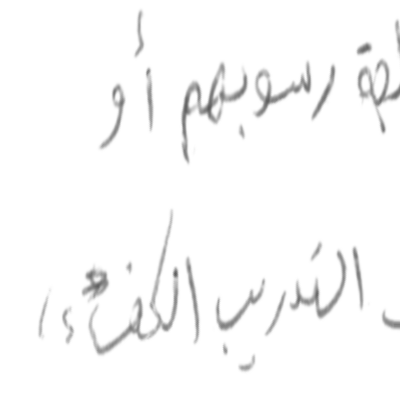 رسوبهم أو
التدريب الكفء،